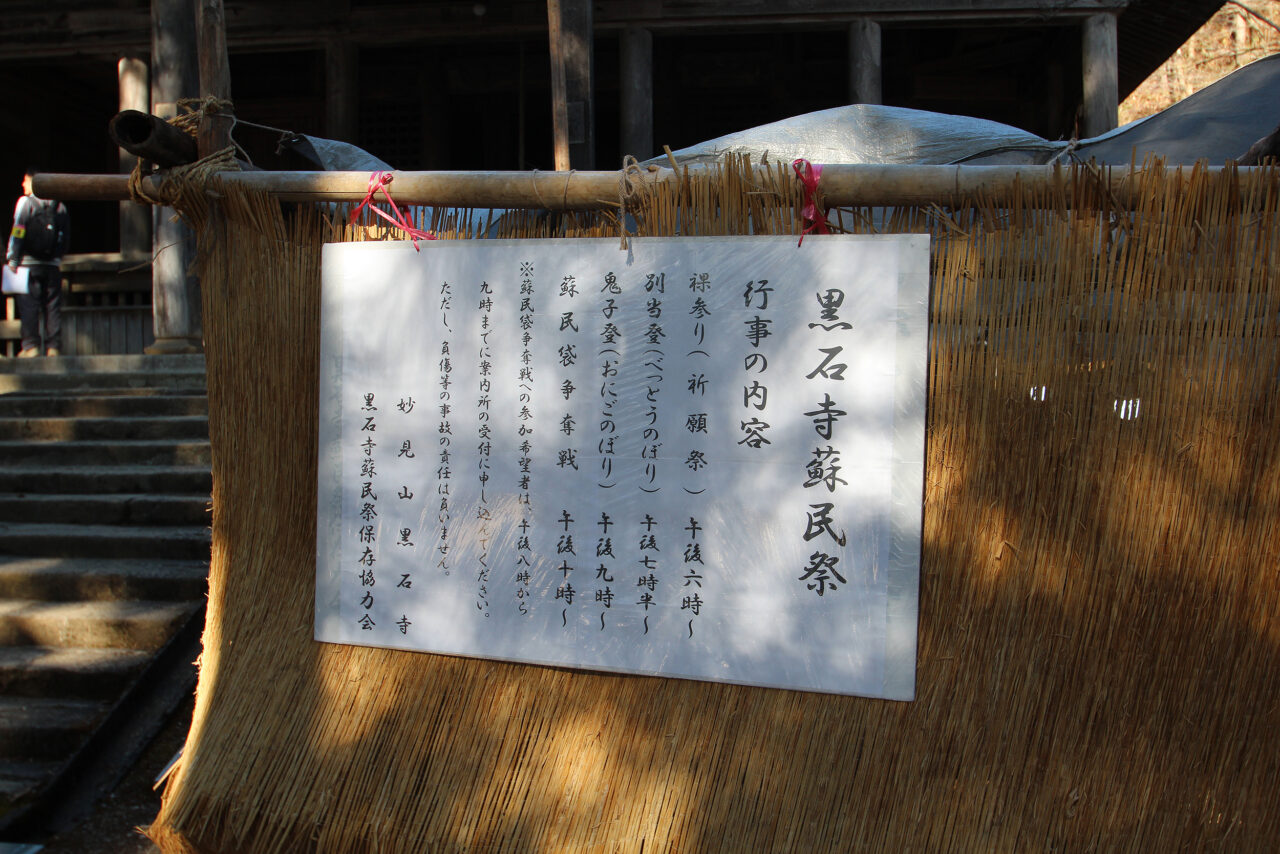 黒石寺蘇民祭
行事の内容
裸参り(祈願祭) 午後六時~
別当登(べっとうのぼり) 午後七時半~
鬼子登(おにごのぼり) 午後九時~
蘇民袋争奪戦 午後十時~
※蘇民袋争奪戦への参加希望者は、午後八時から
九時までに案内所の受付に申し込んでください。
ただし、負傷等の事故の責任は負いません。
妙見山黒石寺
黒石寺蘇民祭保存協力会